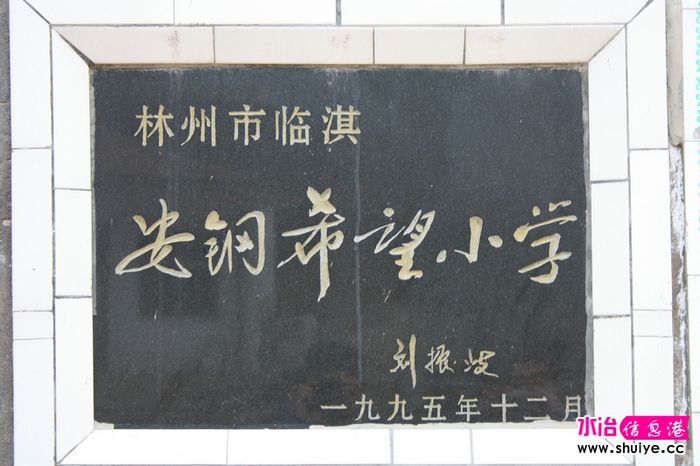 林州市临淇
安钢希望小学
刘振波
一九九五年十二月
水冶信息港
www.shuiye.cc